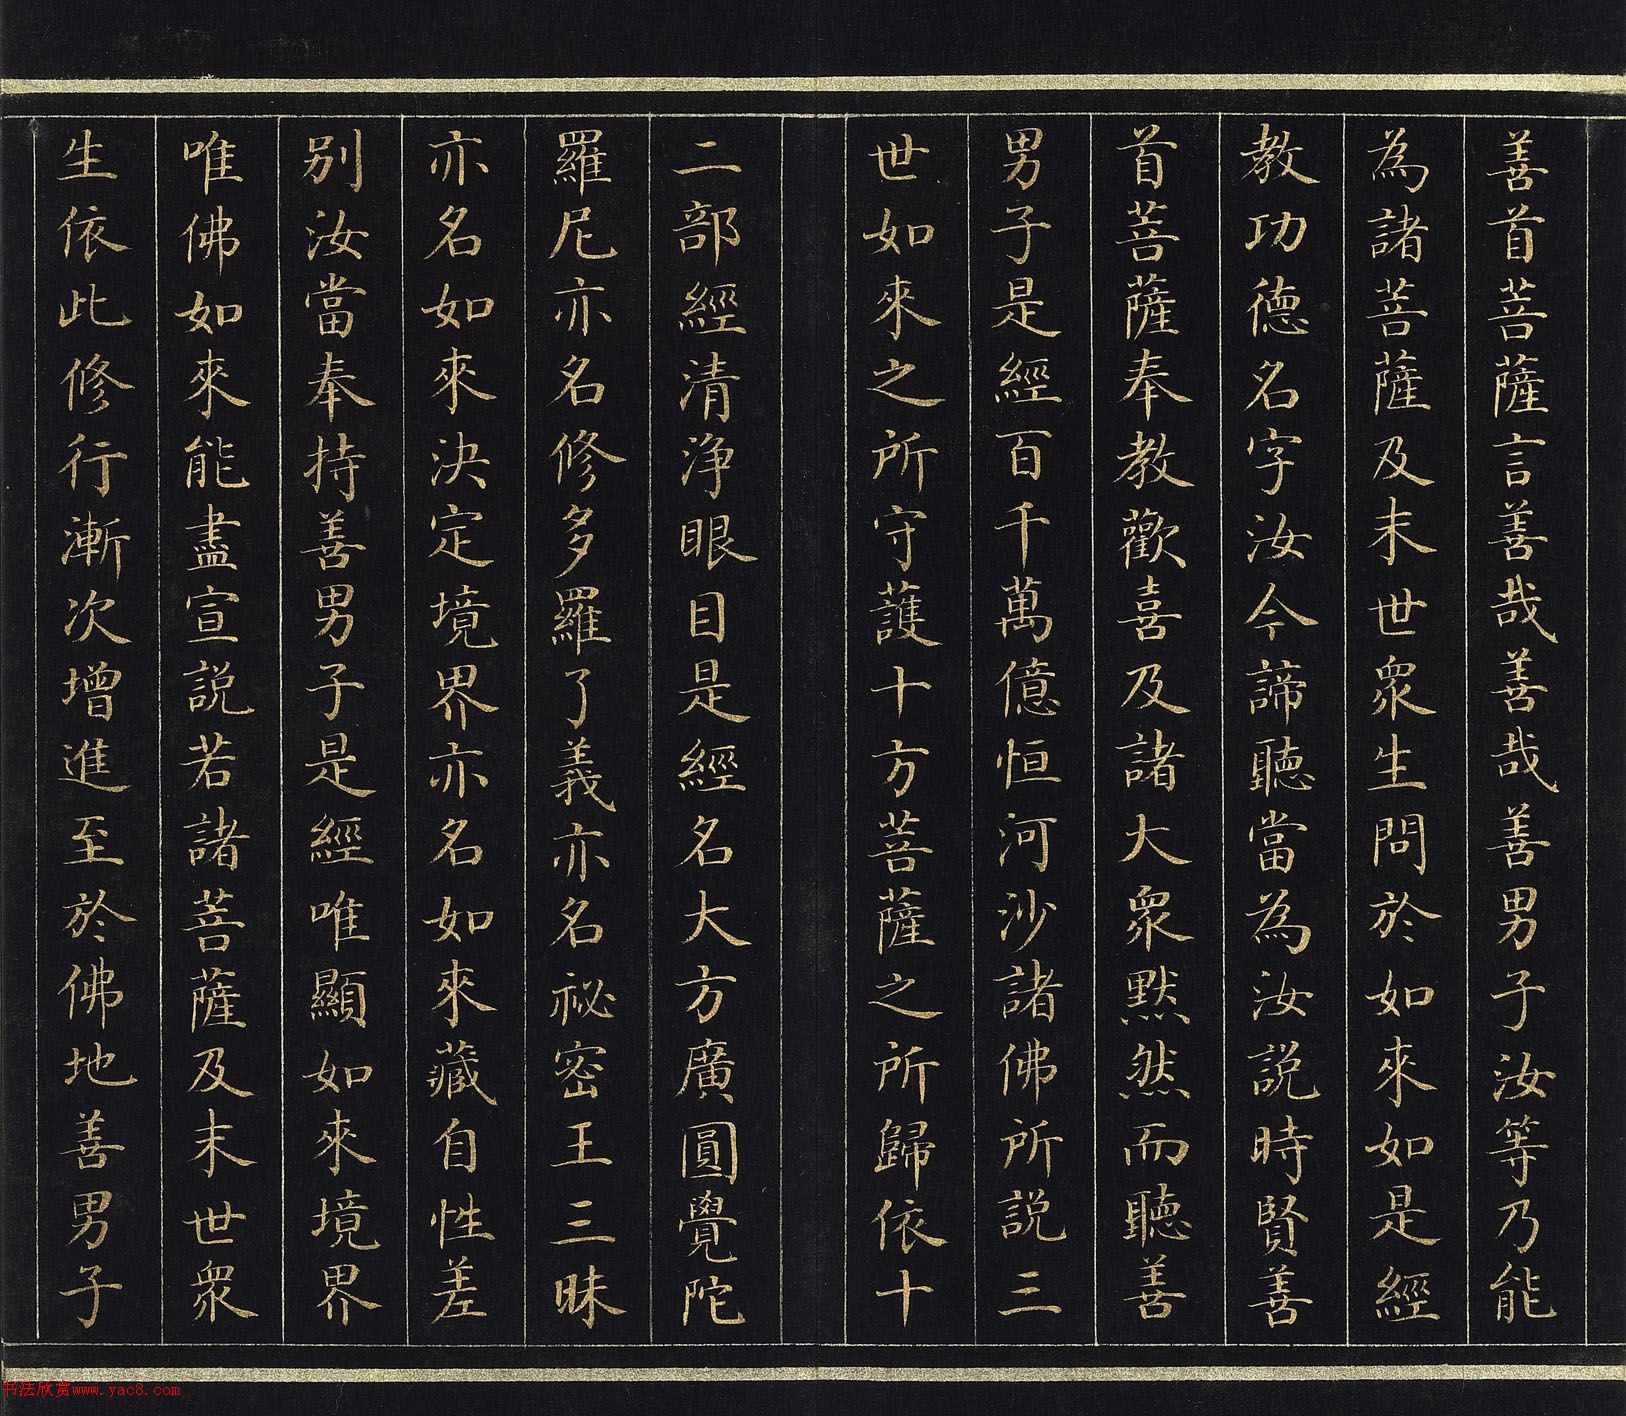 善首菩薩言善哉善哉善男子汝等乃能
為諸菩薩及末世眾生問於如來如是經
教功德名字汝今諦聽當為汝說時賢善
首菩薩奉教歡喜及諸大眾默然而聽善
男子是經百千萬億恒河沙諸佛所說三
世如來之所守護十方菩薩之所歸依十
二部經清淨眼目是經名大方廣圓覺陀
羅尼亦名修多羅了義亦名祕密王三昧
亦名如來決定境界亦名如來藏自性差
別汝當奉持善男子是經唯顯如來境界
唯佛如來能盡宣說若諸菩薩及末世眾
生依此修行漸次增進至於佛地善男子
书法欣赏www.yac8.com